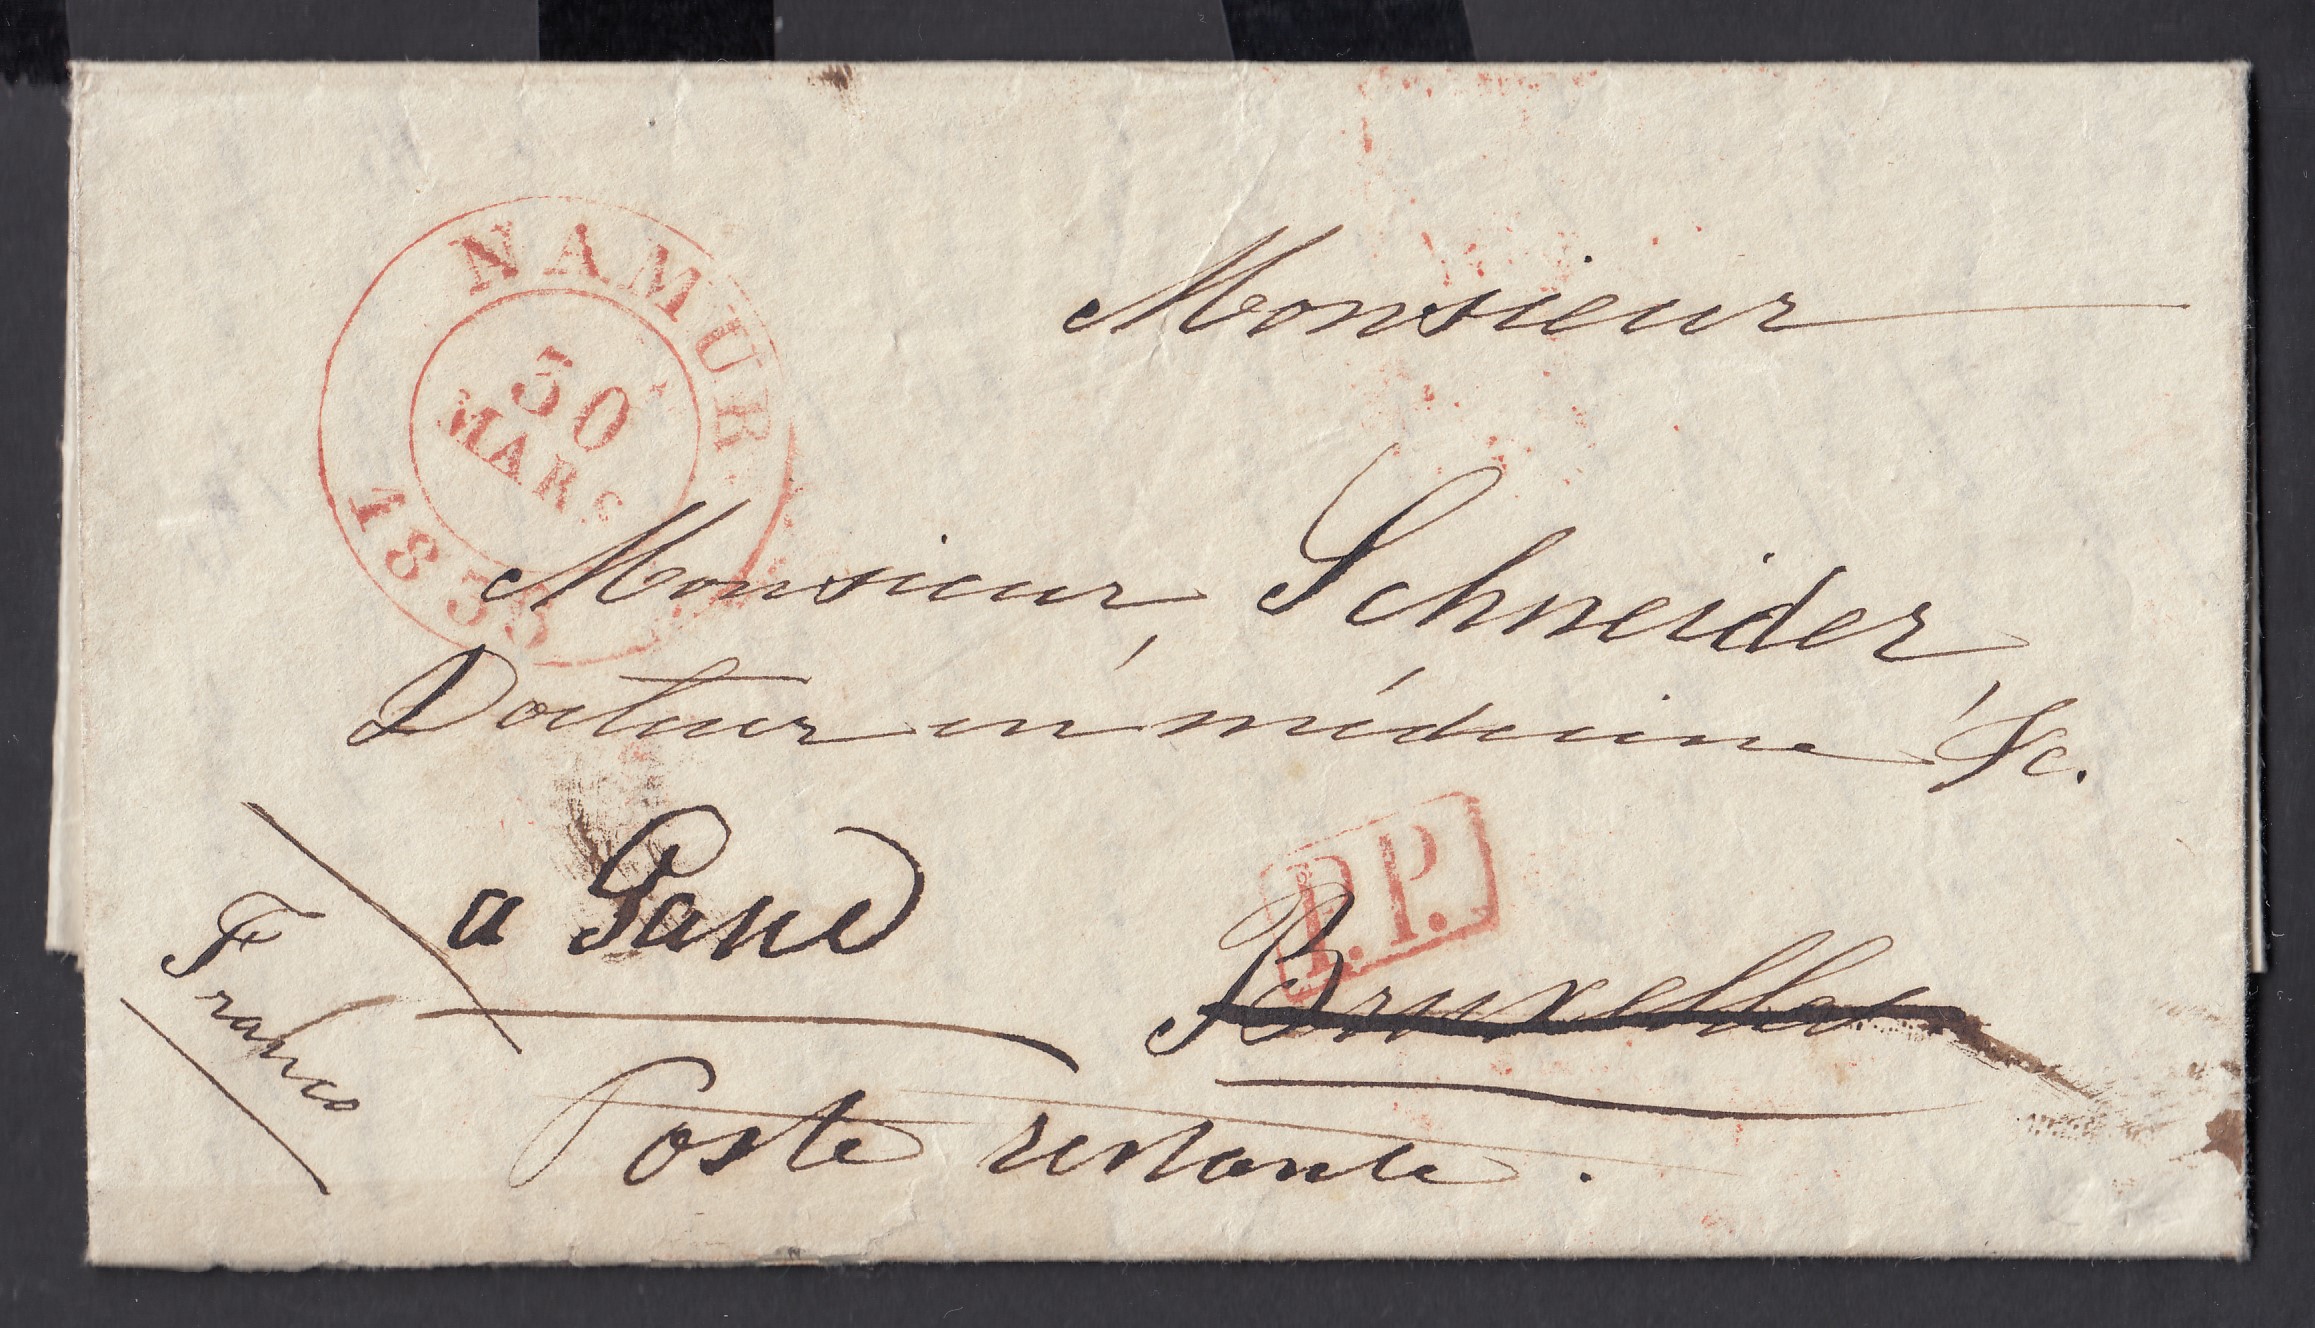 NAMUR
30
MARS
183
Monsieur
Monsieur, Schneider,
Docteur en médecine, &c.
P.P.
a Gand
Bruxelles
Franco
Poste restante.